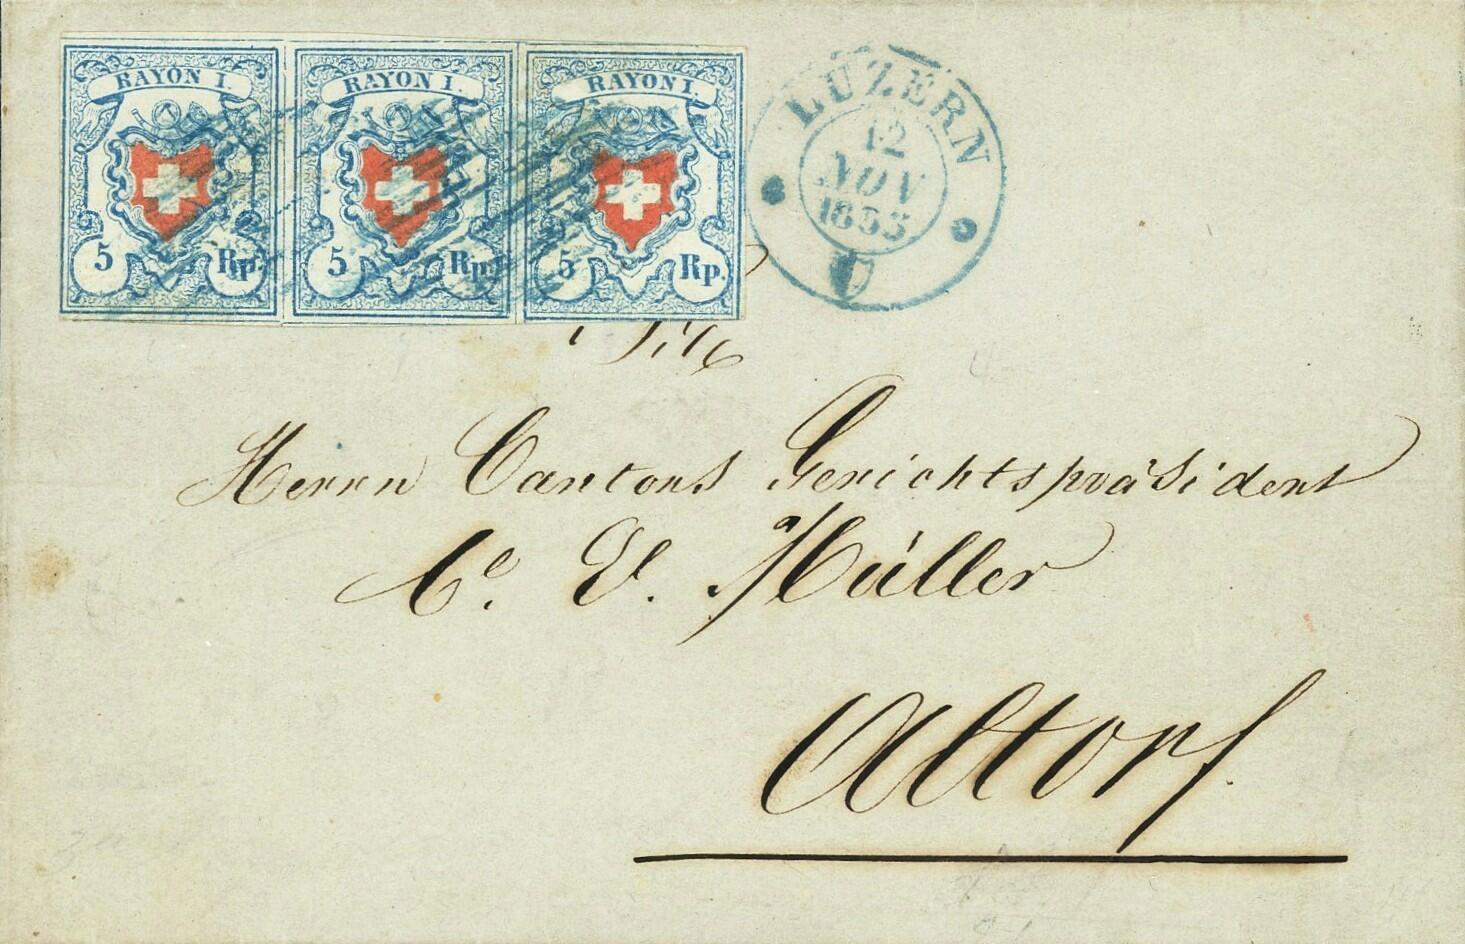 RAYON I. RAYON I. RAYON I.
5 Rp. 5 Rp. 5 Rp.
LUZERN
12
NOV
1853
Herrn Cantons Gerichtspräsident
Müller
Altorf.